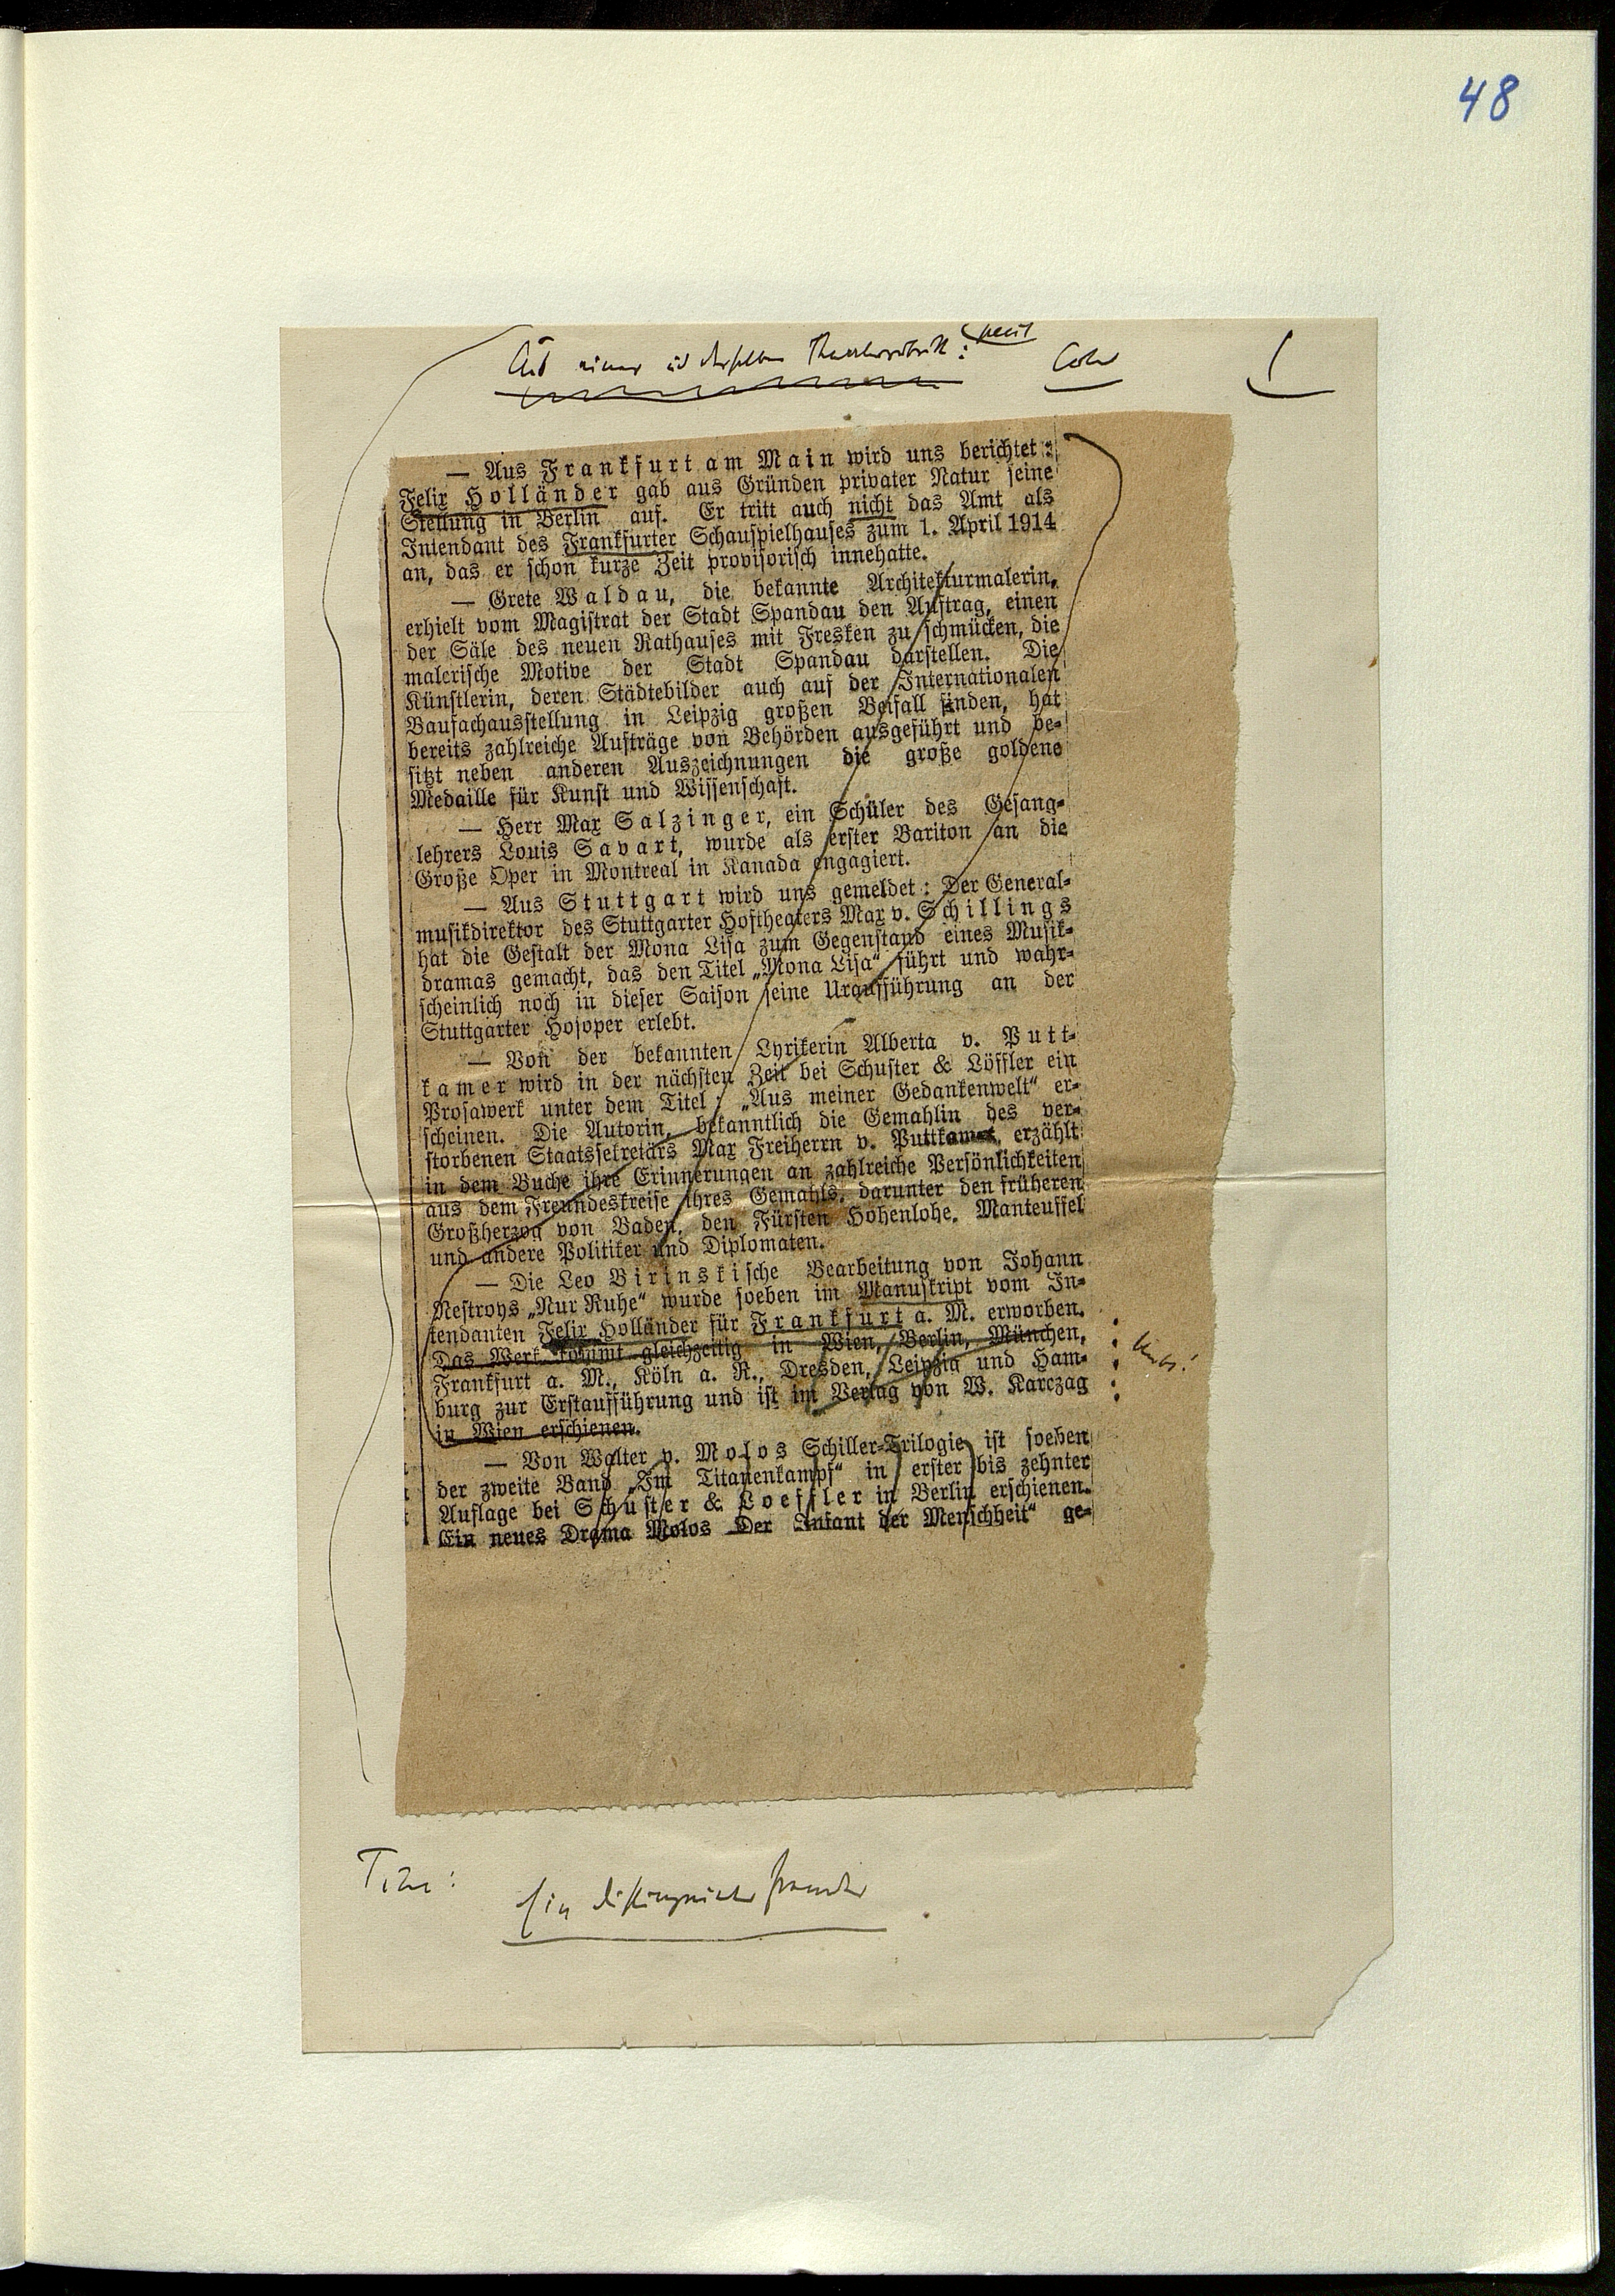 48
Aus einer u derselben Theaterrubrik:
— Aus Frankfurt am Main wird uns berichtet:
Felix Holländer gab aus Gründen privater Natur seine
Stellung in Berlin auf. Er tritt auch nicht das Amt als
Intendant des Frankfurter Schauspielhauses zum 1. April 1914
an, das er schon kurze Zeit provisorisch innehatte.
— Grete Waldau, die bekannte Architekturmalerin,
erhielt vom Magistrat der Stadt Spandau den Auftrag, einen
der Säle des neuen Rathauses mit Fresken zu schmücken, die
malerische Motive der Stadt Spandau darstellen. Die
Künstlerin, deren Städtebilder auch auf der Internationalen
Baufachausstellung in Leipzig großen Beifall finden, hat
bereits zahlreiche Aufträge von Behörden ausgeführt und be-
sitzt neben anderen Auszeichnungen die große goldene
Medaille für Kunst und Wissenschaft.
— Herr Max Salzinger, ein Schüler des Gesang-
lehrers Louis Savart, wurde als erster Bariton an die
Große Oper in Montreal in Kanada engagiert.
— Aus Stuttgart wird uns gemeldet: Der General-
musikdirektor des Stuttgarter Hoftheaters Max v. Schillings
hat die Gestalt der Mona Lisa zum Gegenstand eines Musik-
dramas gemacht, das den Titel „Mona Lisa“ führt und wahr-
scheinlich noch in dieser Saison seine Uraufführung an der
Stuttgarter Hofoper erlebt.
— Von der bekannten Lyrikerin Alberta v. Putt-
kamer wird in der nächsten Zeit bei Schuster & Löffler ein
Prosawerk unter dem Titel: „Aus meiner Gedankenwelt“ er-
scheinen. Die Autorin, bekanntlich die Gemahlin des ver-
storbenen Staatssekretärs Max Freiherrn v. Puttkamer, erzählt
in dem Buche ihre Erinnerungen an zahlreiche Persönlichkeiten
aus dem Freundeskreise ihres Gemahls, darunter den früheren
Großherzog von Baden, den Fürsten Hohenlohe, Manteuffel
und andere Politiker und Diplomaten.
— Die Leo Birinskische Bearbeitung von Johann
Nestroys „Nur Ruhe“ wurde soeben im Manuskript vom In-
tendanten Felix Holländer für Frankfurt a. M. erworben.
Das Werk kommt gleichzeitig in Wien, Berlin, München,
Frankfurt a. M., Köln a. R., Dresden, Leipzig und Ham-
burg zur Erstaufführung und ist im Verlag von W. Karczag
in Wien erschienen.
— Von Walter v. Molos Schiller-Trilogie ist soeben
der zweite Band „Im Titanenkampf“ in erster bis zehnter
Auflage bei Schuster & Loeffler in Berlin erschienen.
Ein neues Drama Molos „Der Infant der Menschheit“ ge-
Titel:
Ein distinguierter Fremder